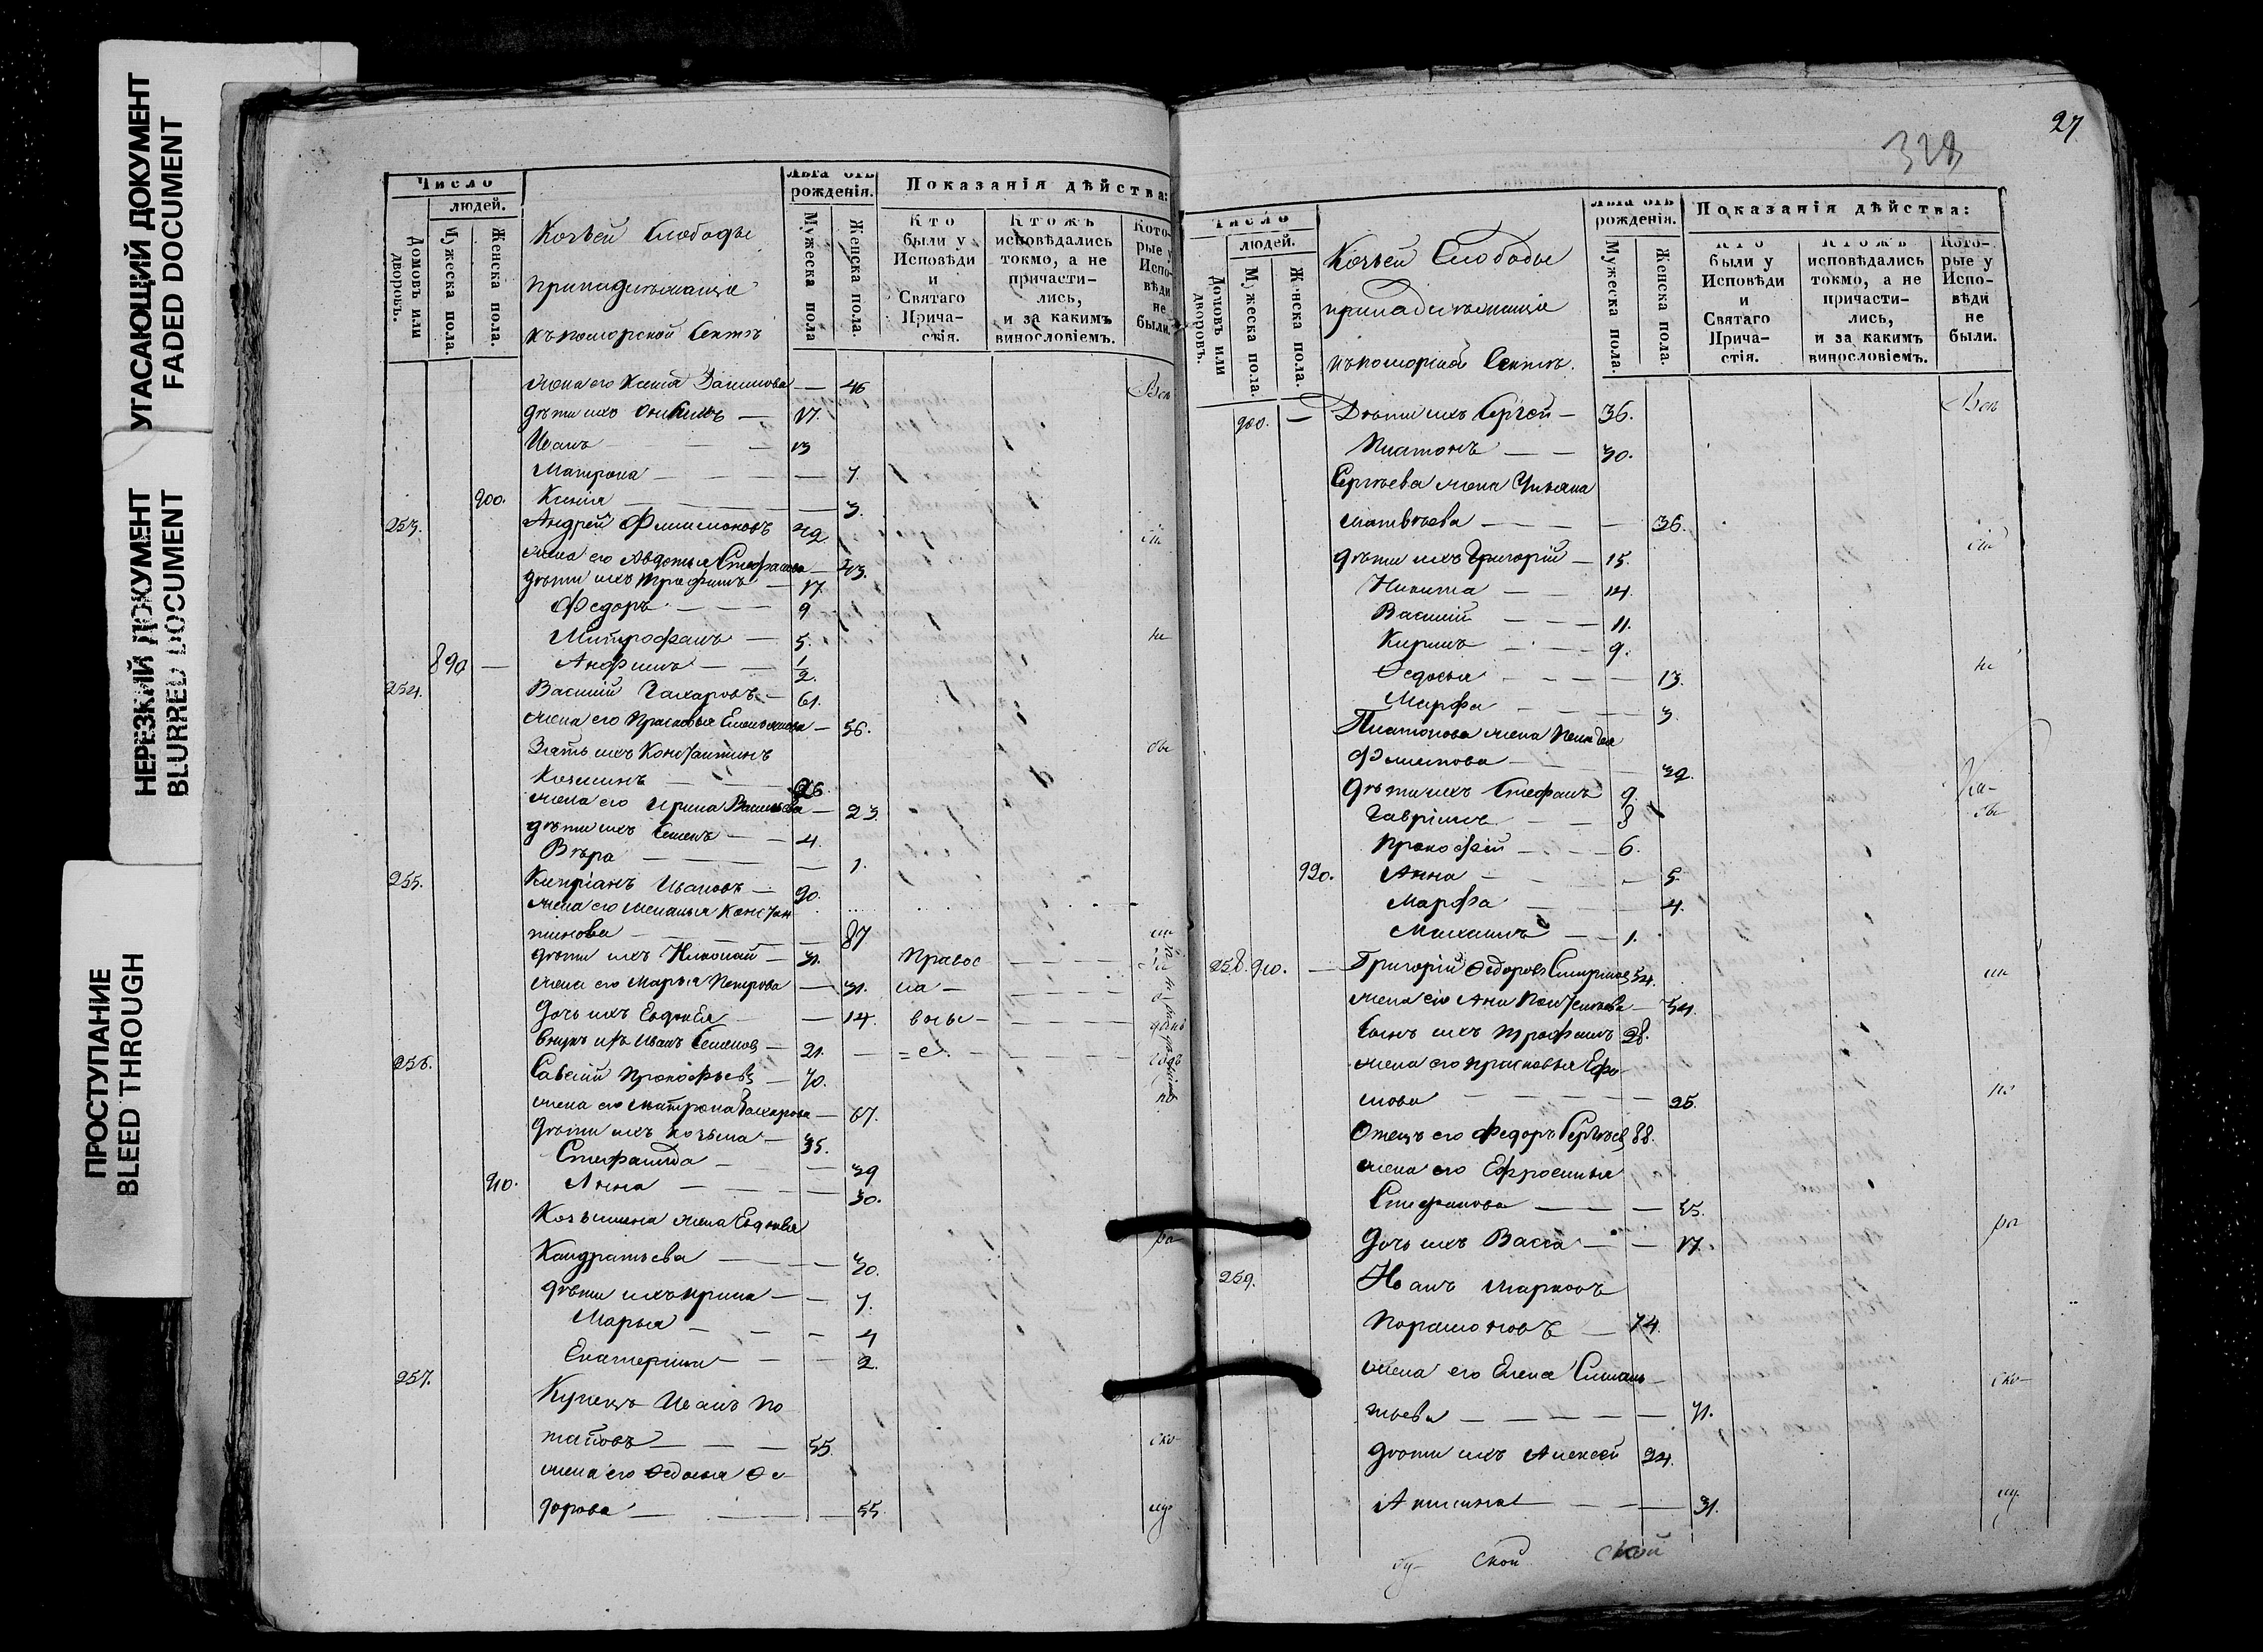 УГАСАЮЩИЙ ДОКУМЕНТ
FADED DOCUMENT
НЕРЕЗКИЙ ДОКУМЕНТ
BLURRED DOCUMENT
ПРОСТУПАНИЕ
BLEED THROUGH
Число
людей.
Домовъ или дворовъ.
Мужеска пола.
Женска пола.
Козьей Слободы
принадлежащіе
къ поморской Сектѣ
Лѣта отъ рожденія.
Мужеска пола
Женска пола.
Показанія дѣйства:
Кто были у Исповѣди и Святаго Прича-стія.
Ктожъ исповѣдались токмо, а не причасти-лись, и за какимъ винословіемъ.
Кото-рые у Испо-вѣди не были.
жена его Ксенія — 46 Всѣ
дѣти ихъ — 17.
Иванъ — 13
Матрона — 7.
900. Ксенія — 3.
253. Андрей Филимоновъ 42
жена его Авдотья Стефанова — 43.
дѣти ихъ Трофимъ — 17.
Федоръ — 9
Митрофанъ — 5.
890 — Анфимъ — 1/2.
254. Василій Захаровъ — 61.
жена его Прасковья Емельянова — 56.
Зять ихъ Константинъ
Козминъ — 26.
жена его Ирина Васильева — 23.
дѣти ихъ Семенъ — 4.
Вѣра — 1.
255. Кипріанъ Ивановъ — 90.
жена его Меланья Констан
тинова — 87
дѣти ихъ Николай — 31. Правос
жена его Марья Петрова — 31. ла —
дочь ихъ Евдокея — 14.
внукъ ихъ Иванъ Семеновъ — 21.
256. Савелій Прокофьевъ — 70.
жена его Матрона Захарова — 67.
дѣти ихъ Козьма — 35.
Стефанида — 39
910. Анна — 30.
Козьмина жена Евдокея
Кондратьева — 30.
дѣти ихъ Ирина — 7.
Марья — 4
Екатерина — 2.
257. Купецъ Иванъ По
таповъ — 55.
жена его Ѳедосья Ѳе-
дорова — 55.
27
328
Число
людей.
Домовъ или дворовъ.
Мужеска пола.
Женска пола.
Козьей Слободы
принадлежащіе
къ поморской Сектѣ.
Лѣта отъ рожденія.
Мужеска пола.
Женска пола.
Показанія дѣйства:
Кто были у Исповѣди и Святаго Прича-стія.
Ктожъ исповѣдались токмо, а не причасти-лись, и за какимъ винословіемъ.
Кото-рые у Испо-вѣди не были.
900. — Дѣти ихъ Сергѣй — 36. Всѣ
Платонъ — 30.
Сергѣева жена Ульяна
Матвѣева — 36.
дѣти ихъ Григорій — 15.
Никита — 14.
Василій — 11.
Кирилъ — 9.
Ѳедосья — 13.
Марфа — 3.
Платонова жена
Филипова — 32.
дѣти ихъ Стефанъ 9.
Гавріилъ — 8
Прокофій — 6.
920. Анна — 5.
Марфа — 4.
Михаилъ — 1.
258. 910. — Григорій Ѳедоровъ Смирновъ 54.
жена его Анна — 54.
Сынъ ихъ Трофимъ 28.
жена его Прасковья Ефи-
мова — 25.
Отецъ его Федоръ Сергѣевъ 88.
жена его Ефросинья
Стефанова — 55.
дочь ихъ Васса — 17.
259. Иванъ Марковъ
Парамоновъ — 74.
жена его Елена
тьева — 71.
дѣти ихъ Алексѣй 24.
Акилина — 31.
ской ской